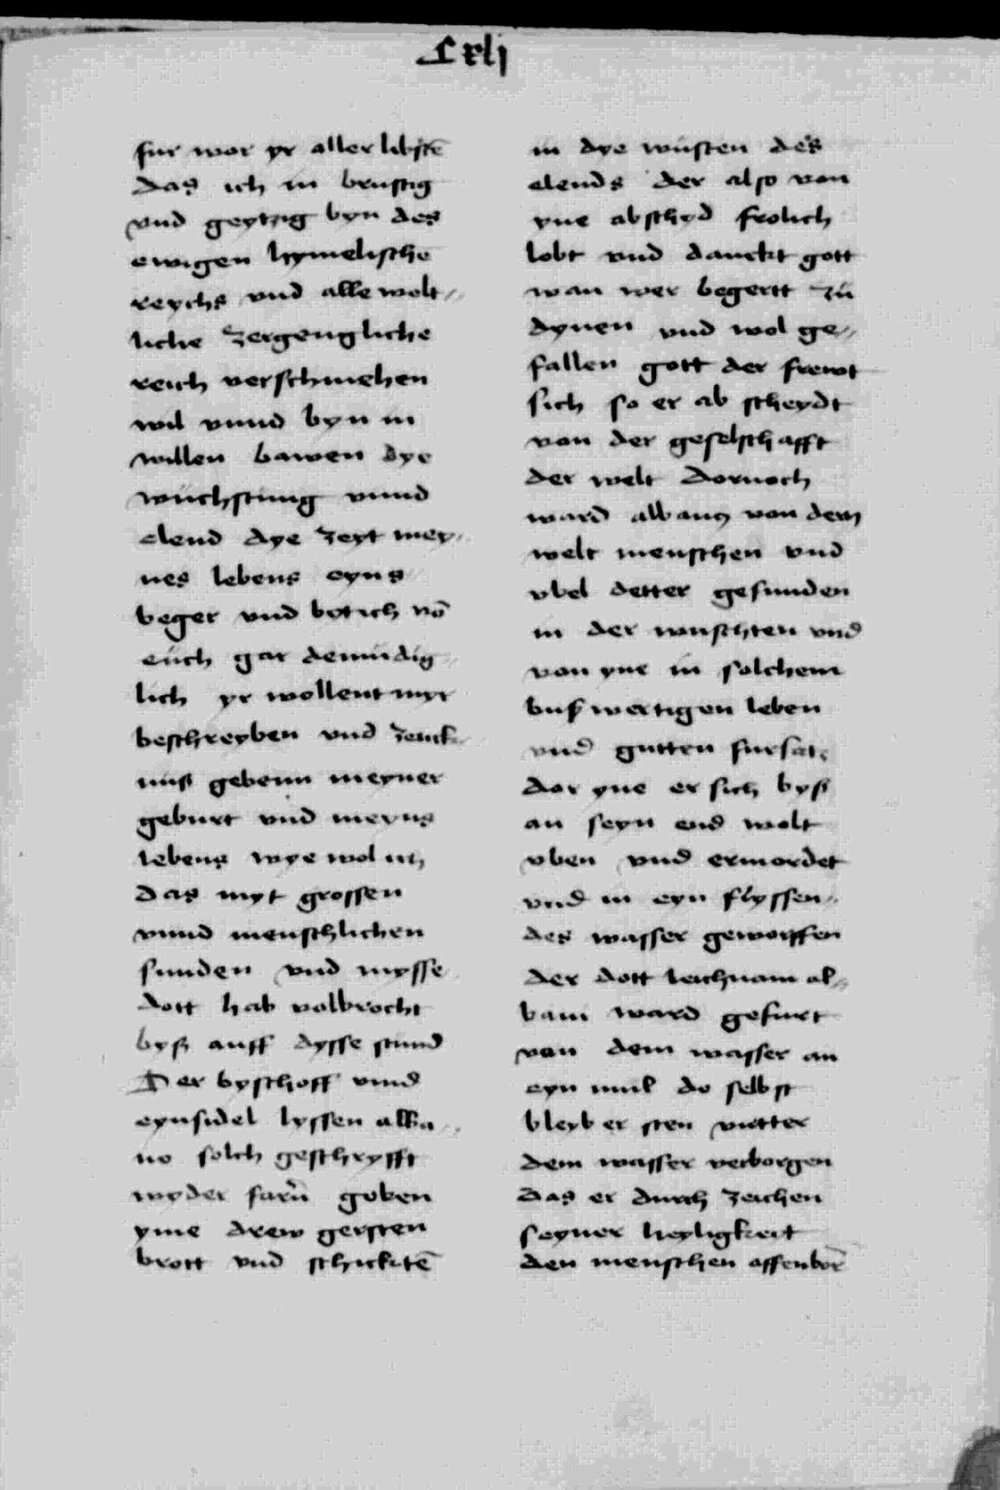 Cxlj
fur wor yr aller libstē
das ich in brustig
vnd geytzig byn des
ewigen hymelischē
reychs vnd alle welt„
liche zergengliche
reich verschmehen
wil vnnd byn in
willen bawen dye
wüchstung vnnd
elend dye zeyt mey„
nes lebens eyns
beger vnd bet ich vō
eüch gar demüdig„
lich yr wollent myr
beschreyben vnd zeuck„
nuß gebenn meyner
geburt vnd meyns
lebens wye wol ich
das myt grossen
vnnd menschlichen
sunden vnd mysse„
dott hab volbrocht
byß auff dysse stund
Der byschoff vnnd
eynsidel lyssen alba„
no solch geschryfft
wyder farñ geben
yme drew gersten
brott vnd schicktē
in dye wüsten des
elends der also von
yne abschyd frolich
lobt vnd danckt gott
wan wer begertt zů
dynen vnd wol ge„
fallen gott der frewt
sich so er ab scheydt
von der geselschafft
der welt Dornoch
ward albanꝫ von dem
welt menschen vnd
vbel detter gefunden
in der wuschten vnd
von yne in solchem
buß wertigen leben
vnd gutten fursatz
dor yne er sich byß
an seyn end wolt
vben vnd ermordet
vnd in eyn flyssen„
des wasser geworffen
der dott leichnam al„
bani ward gefurt
von dem wasser an
eyn mul do selbst
bleyb er sten vntter
dem wasser verborgen
das er durch zeichen
seyner heyligkeit
den menschen offenbor̄